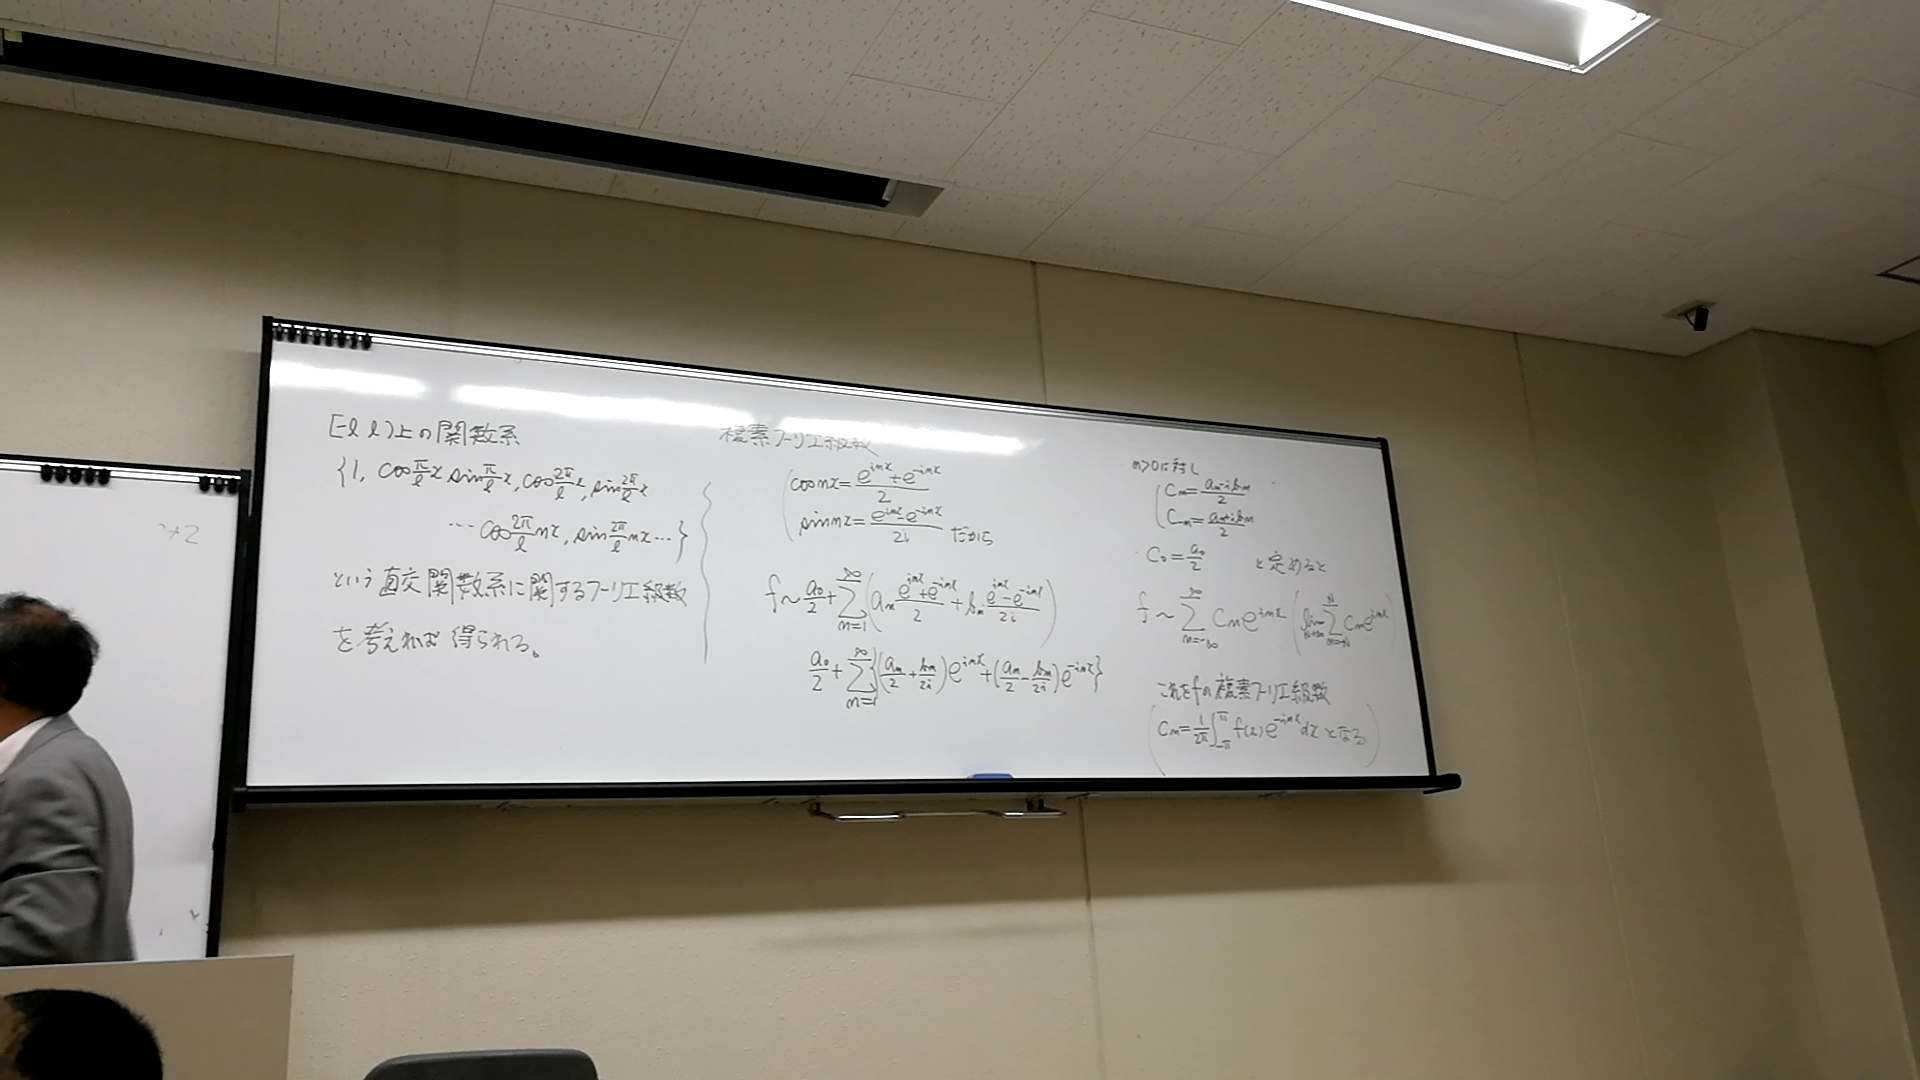 [-l l)上の関数系
{1, cos π/l x sin π/l x, cos 2π/l x, sin 2π/l x
… cos 2π/l nx, sin 2π/l nx …}
という直交関数系に関するフーリエ級数
を考えれば得られる。
複素フーリエ級数
(cos nx = (e^{inx} + e^{-inx})/2
sin nx = (e^{inx} - e^{-inx})/2i だから
f ~ a₀/2 + Σ_{n=1}^{∞} (aₙ (e^{inx} + e^{-inx})/2 + bₙ (e^{inx} - e^{-inx})/2i)
a₀/2 + Σ_{n=1}^{∞} {(aₙ/2 + bₙ/2i) e^{inx} + (aₙ/2 - bₙ/2i) e^{-inx}}
n>0に対し
(Cₙ = (aₙ - ibₙ)/2
C₋ₙ = (aₙ + ibₙ)/2
C₀ = a₀/2 と定めると
f ~ Σ_{n=-∞}^{∞} Cₙ e^{inx} (lim_{N→∞} Σ_{n=-N}^{N} Cₙ e^{inx})
これをfの複素フーリエ級数
(Cₙ = 1/2π ∫_{-π}^{π} f(x) e^{-inx} dx となる)